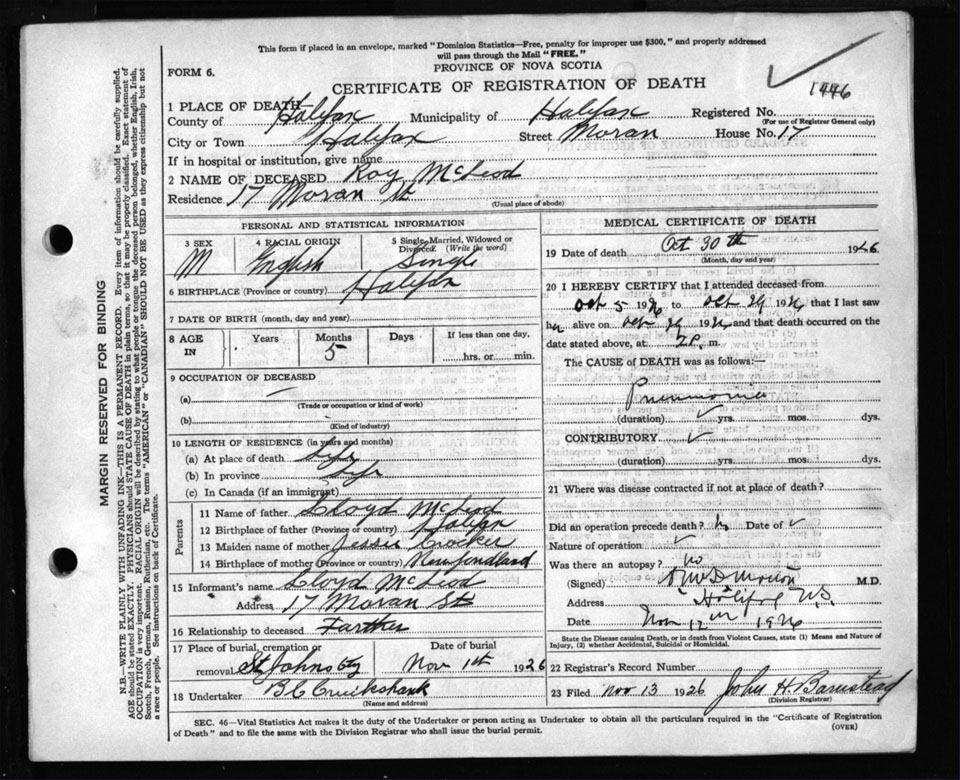 This form if placed in an envelope, marked "Dominion Statistics—Free, penalty for improper use $300," and properly addressed
will pass through the Mail "FREE."
PROVINCE OF NOVA SCOTIA
FORM 6.
CERTIFICATE OF REGISTRATION OF DEATH
1446
1 PLACE OF DEATH—
County of Halifax Municipality of Halifax Registered No.
(For use of Registrar General only)
City or Town Halifax Street Moran House No. 17
If in hospital or institution, give name
2 NAME OF DECEASED Roy McLeod
Residence 17 Moran St
(Usual place of abode)
PERSONAL AND STATISTICAL INFORMATION
3 SEX 4 RACIAL ORIGIN 5 Single, Married, Widowed or
Divorced (Write the word)
M English Single
6 BIRTHPLACE (Province or country) Halifax
7 DATE OF BIRTH (month, day and year)
8 AGE IN Years Months Days If less than one day,
5 hrs. or min.
9 OCCUPATION OF DECEASED
(a) —
(Trade or occupation or kind of work)
(b)
(Kind of industry)
10 LENGTH OF RESIDENCE (in years and months)
(a) At place of death Life
(b) In province Life
(c) In Canada (if an immigrant)
Parents
11 Name of father Lloyd McLeod
12 Birthplace of father (Province or country) Halifax
13 Maiden name of mother Jessie Crocker
14 Birthplace of mother (Province or country) Newfondland
15 Informant's name Lloyd McLeod
Address 17 Moran St
16 Relationship to deceased Farther
17 Place of burial, cremation or Date of burial
removal St Johns Cty Nov 1st 1926
18 Undertaker B C Cruikshank
(Name and address)
MEDICAL CERTIFICATE OF DEATH
19 Date of death Oct 30th 1926
(Month, day and year)
20 I HEREBY CERTIFY that I attended deceased from
Oct 5 1926 to Oct 29 1926 that I last saw
h alive on Oct 29 1926 and that death occurred on the
date stated above, at 2 P. m.
The CAUSE of DEATH was as follows:—
Pneumonia
(duration) yrs. mos. dys.
CONTRIBUTORY
(duration) yrs. mos. dys.
21 Where was disease contracted if not at place of death?
Did an operation precede death? Date of
Nature of operation
Was there an autopsy? no
(Signed) M.D.
Address Halifax N.S.
Date Nov 12th 1926
State the Disease causing Death, or in death from Violent Causes, state (1) Means and Nature of
Injury, (2) whether Accidental, Suicidal or Homicidal.
22 Registrar's Record Number
23 Filed Nov 13 1926 John H. Barnstead
(Division Registrar)
SEC. 46—Vital Statistics Act makes it the duty of the Undertaker or person acting as Undertaker to obtain all the particulars required in the "Certificate of Registration
of Death" and to file the same with the Division Registrar who shall issue the burial permit.
(OVER)
MARGIN RESERVED FOR BINDING
N.B.—WRITE PLAINLY WITH UNFADING INK—THIS IS A PERMANENT RECORD. Every item of information should be carefully supplied.
AGE should be stated EXACTLY. PHYSICIANS should STATE CAUSE OF DEATH in plain terms, so that it may be properly classified. Exact statement of
OCCUPATION is very important. RACIAL ORIGIN will be described by stating to what people or tongue the deceased person belonged, whether English, Irish,
Scotch, French, German, Russian, Ruthenian, etc. The terms "AMERICAN" or "CANADIAN" SHOULD NOT BE USED as they express citizenship but not
a race or people. See instructions on back of Certificate.